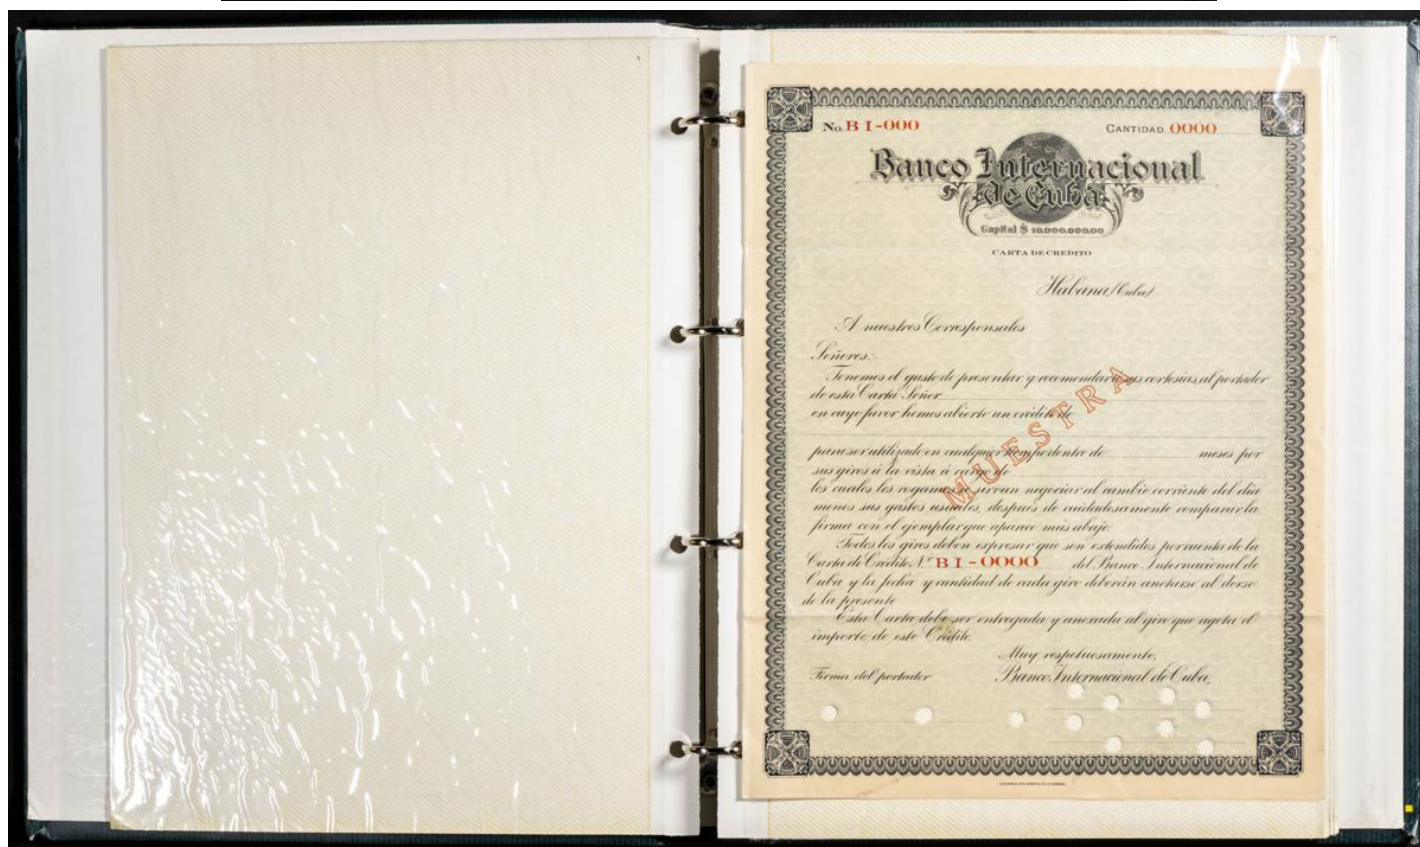 No. B I-000 CANTIDAD 0000
Banco Internacional
de Cuba
Capital $ 10.000.000.00
CARTA DE CREDITO
Habana (Cuba)
A nuestros Corresponsales
Señores:-
Tenemos el gusto de presentar y recomendar á sus cortesias, al portador
de esta Carta Señor
en cuyo favor hemos abierto un crédito de
para ser utilizado en cualquier tiempo dentro de meses por
sus giros á la vista á cargo de
los cuales les rogamos se sirvan negociar al cambio corriente del día
menos sus gastos usuales, después de cuidadosamente comparar la
firma con el ejemplar que aparece más abajo.
Todos los giros deben expresar que son extendidos por cuenta de la
Carta de Crédito N.º B I-0000 del Banco Internacional de
Cuba y la fecha y cantidad de cada giro deberán anotarse al dorso
de la presente
Esta Carta debe ser entregada y anexada al giro que agota el
importe de este Crédito.
Muy respetuosamente,
Firma del portador Banco Internacional de Cuba,
MUESTRA